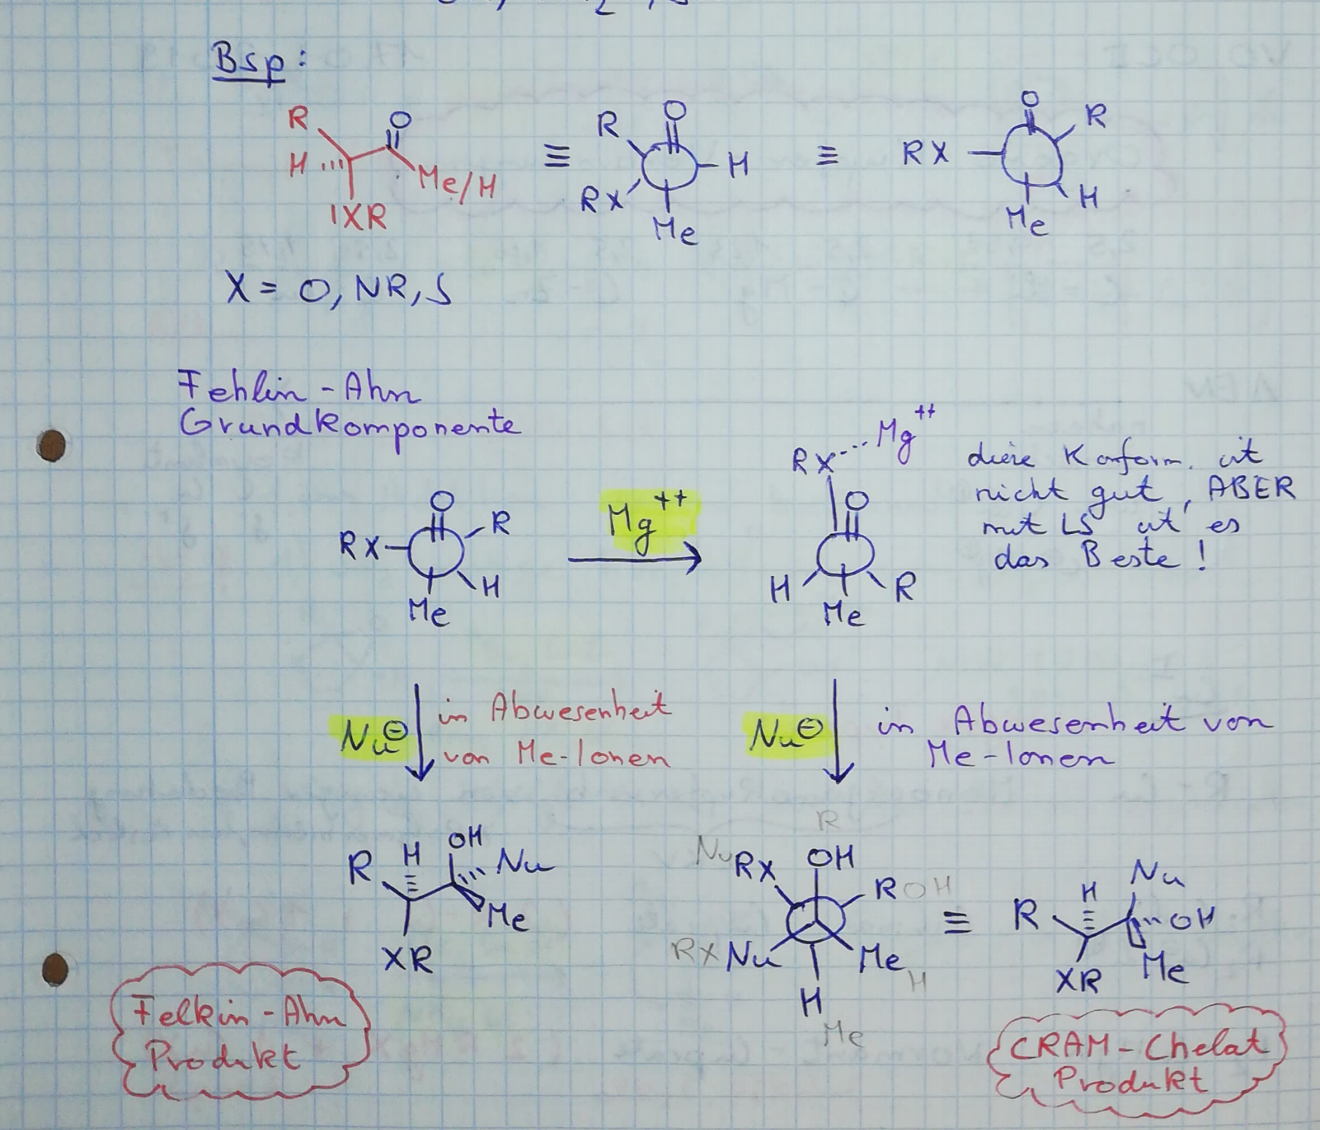 Bsp:
R O R O H O R
H Me/H ≡ RX Me ≡ RX Me H
IXR
X = O, NR, S
Fehlin-Ahn
Grundkomponente
RX...Mg++
diese Konform. ist
nicht gut, ABER
mit LS ist es
das Beste!
O
RX R
H
Me
Mg++
O
H R
Me
Nu⊖ in Abwesenheit
von Me-Ionen
Nu⊖ in Abwesenheit von
Me-Ionen
R H OH Nu
Me
XR
R
Nu RX OH R OH
RX Nu Me H
H
Me
≡
R H Nu OH
XR Me
Felkin-Ahn
Produkt
CRAM-Chelat
Produkt